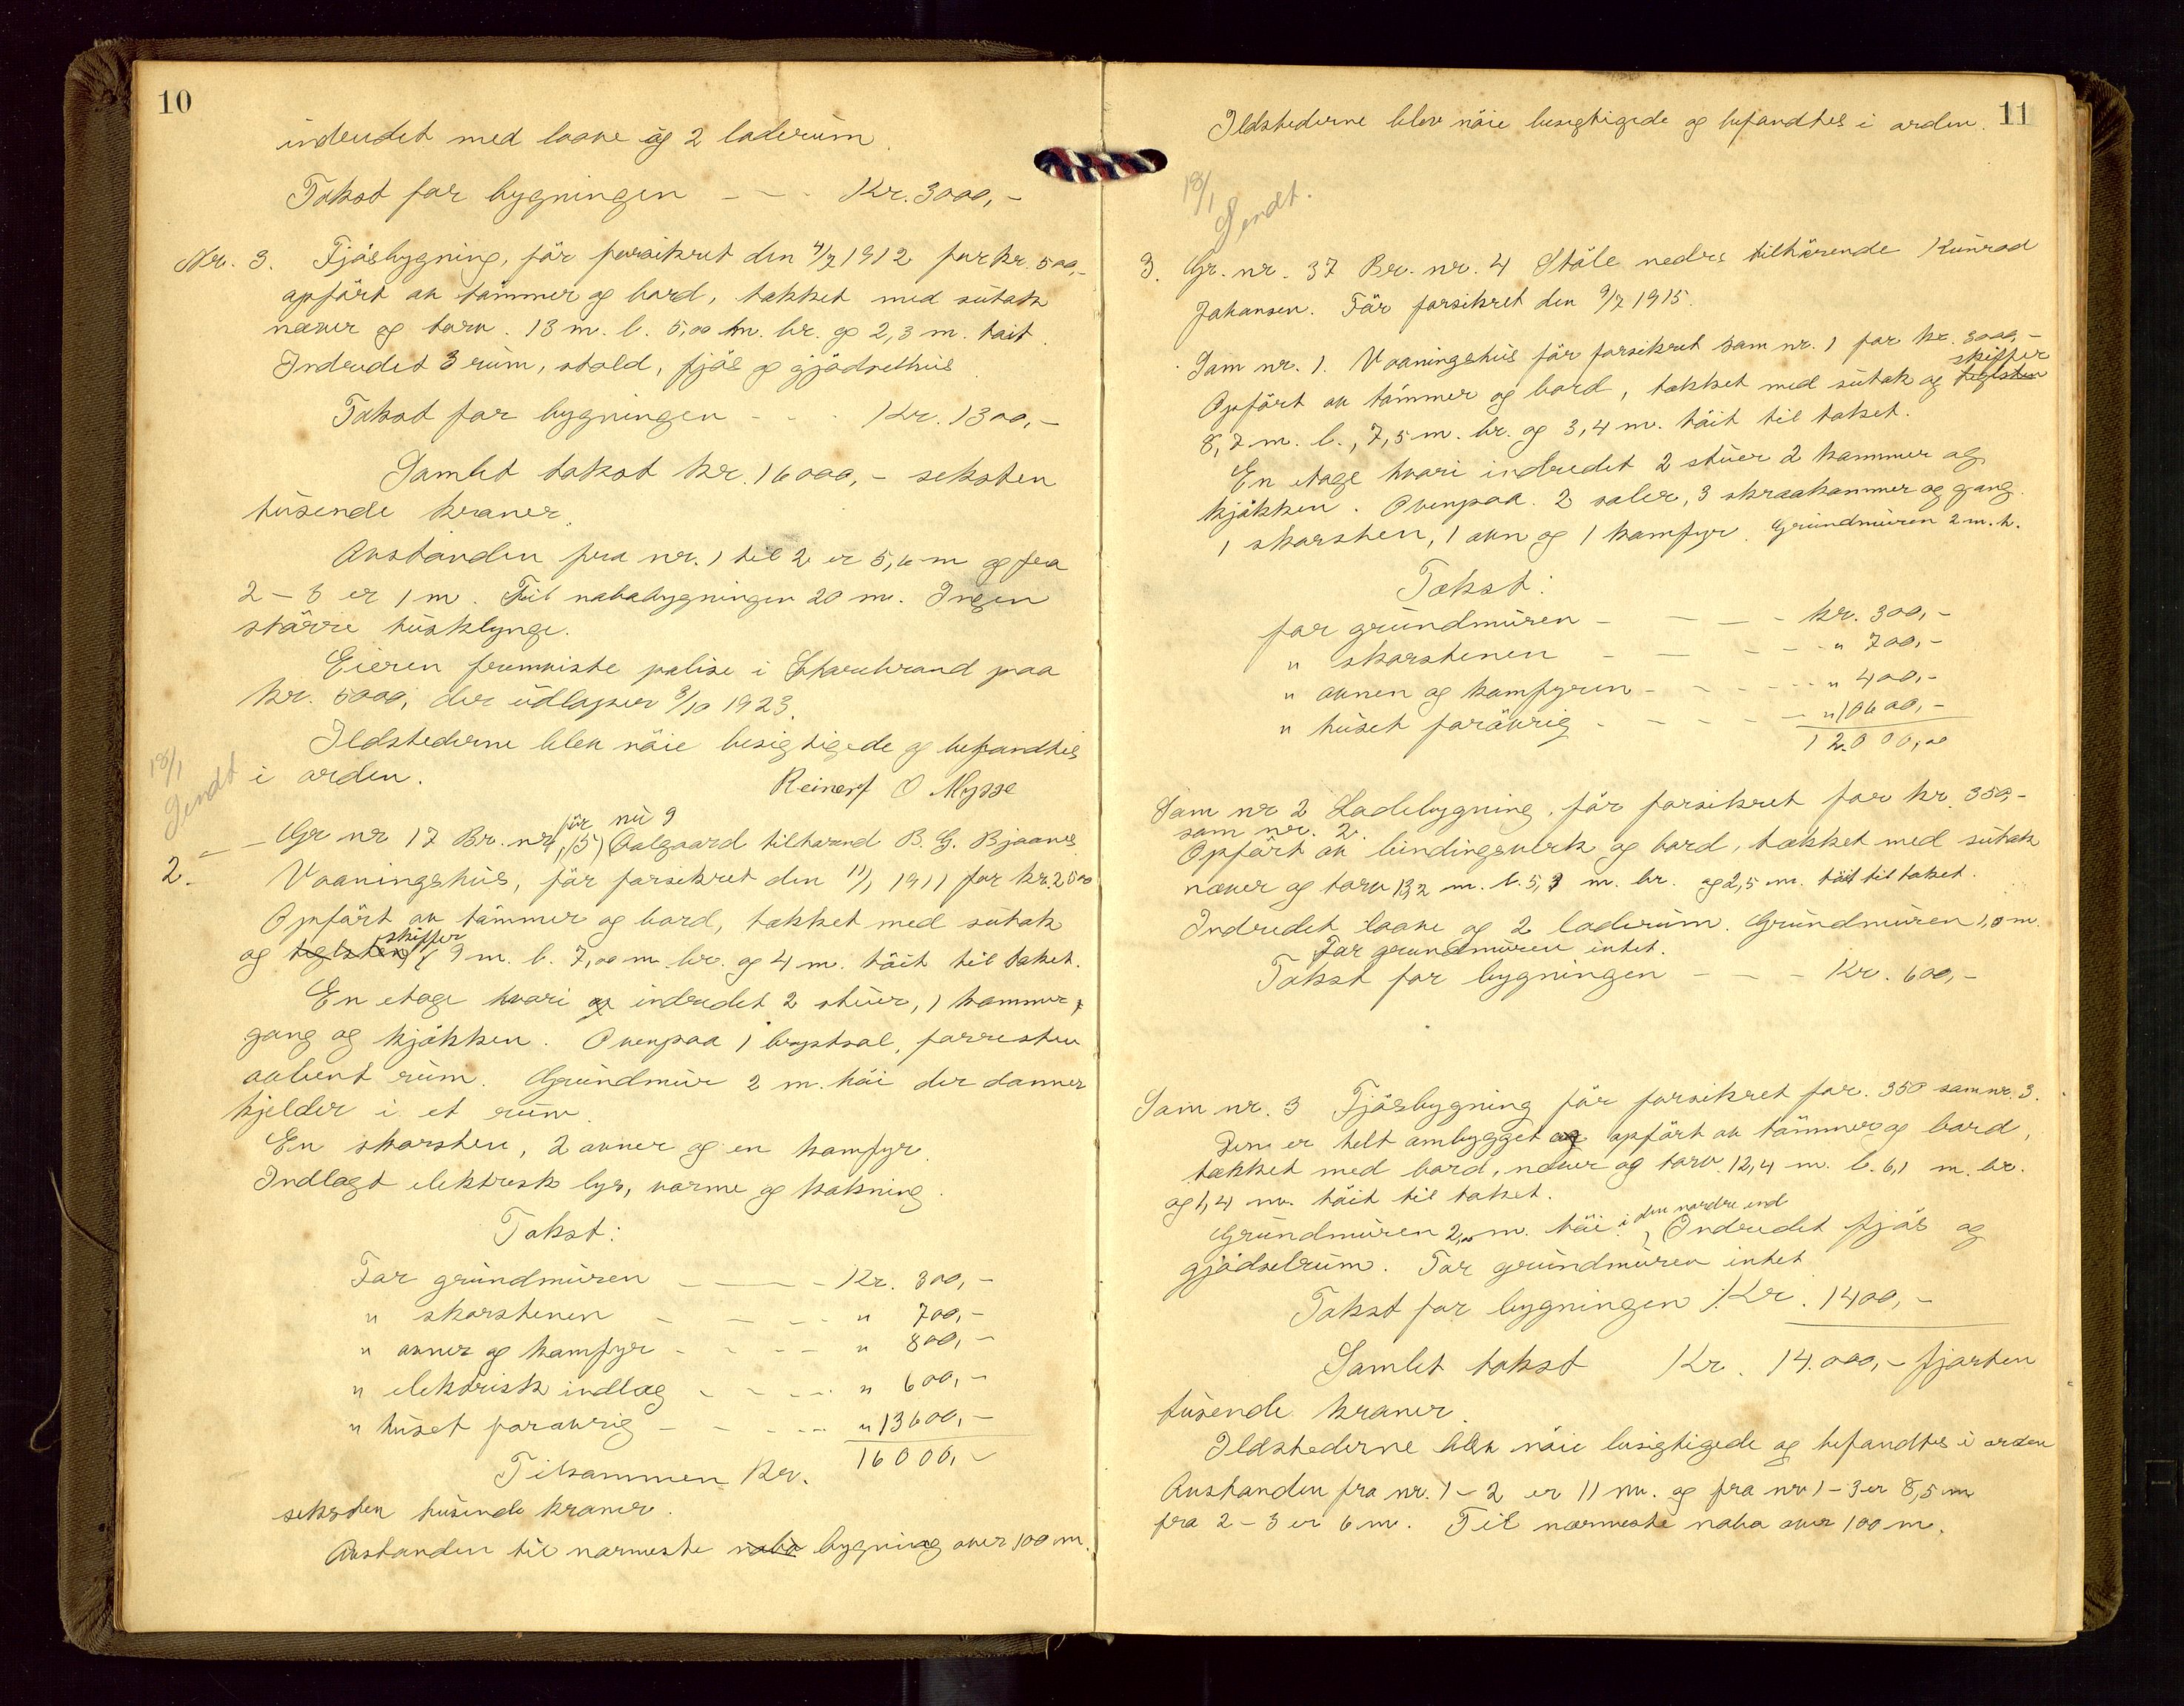 10
indredet med laave og 2 laderum.
Takst for bygningen - - - Kr. 3000,-
Nr. 3. Fjösbygning, för forsikret den 4/7 1912 for kr. 500,-
opfört av tömmer og bord, tækket med sutak
næver og torv. 13 m. l. 5,00 m. br. og 2,3 m. höit.
Indredet 3 rum, stald, fjös og gjödselhus.
Takst for bygningen - - - Kr. 1300,-
Samlet takst kr. 16000,- seksten
tusende kroner.
Avstanden fra nr. 1 til 2 er 5,6 m og fra
2 - 3 er 1 m. Til nabobygningen 20 m. Ingen
större husklynge.
Eieren fremviste polise i Storebrand paa
kr. 5000, der udlöper 3/10 1923.
Ildstederne blev nöie besigtigede og befandtes
i orden.
Reinert O Mysse
18/1
Sendt
2.
för nu 9
Gr nr 17 Br. nr. (5) Aalgaard tilhørend B. G. Bjaanes
Vaaningshus, för forsikret den 11/1 1911 for kr. 2500
Opfört av tömmer og bord, tækket med sutak
skiffer
og teglsten, 9 m. l. 7,00 m. br. og 4 m. höit til taket.
En etage hvori er indredet 2 stuer, 1 kammer,
gang og kjökken. Ovenpaa 1 brystsal, forresten
aabent rum. Grundmur 2 m. höi der danner
kjelder i et rum.
En skorsten, 2 ovner og en komfyr.
Indlagt elektrisk lys, varme og kokning.
Takst:
For grundmuren - - - Kr. 300,-
" skorstenen - - - " 700,-
" ovner og komfyr - - - " 800,-
" elektrisk indlæg - - - " 600,-
" huset forøvrig - - - " 13600,-
Tilsammen Kr. 16000,-
seksten tusende kroner.
Avstanden til nærmeste nabo bygning over 100 m.
11
Ildstederne blev nöie besigtigede og befandtes i orden.
18/1
Sendt.
3. Gr. nr. 37 Br. nr. 4 Stöle nedre tilhörende Kunrad
Johansen. För forsikret den 9/7 1915.
Som nr. 1. Vaaningshus för forsikret som nr. 1 for kr. 3000,-
skiffer
Opfört av tömmer og bord, tækket med sutak og teglsten
8,7 m. l., 7,5 m. br. og 3,4 m. höit til taket.
En etage hvori indredet 2 stuer 2 kammer og
kjökken. Ovenpaa 2 saler, 3 skraakammer og gang.
1 skorsten, 1 ovn og 1 komfyr. Grundmuren 2 m. h.
Takst:
for grundmuren - - - kr. 300,-
" skorstenen - - - " 700,-
" ovnen og komfyren - - - " 400,-
" huset forövrig - - - " 10600,-
12.000,00
Som nr 2 Ladebygning, för forsikret for kr. 350,-
som nr. 2.
Opfört av bindingsverk og bord, tækket med sutak
næver og torv 13,2 m. l. 5,3 m. br. og 2,5 m. höit til taket.
Indredet laave og 2 laderum. Grundmuren 1,0 m.
For grundmuren intet.
Takst for bygningen - - - Kr. 600,-
Som nr. 3 Fjösbygning för forsikret for. 350 som nr. 3.
Den er helt ombygget og opfört av tömmer og bord,
tækket med bord, næver og torv. 12,4 m. l. 6,1 m. br.
og 1,4 m. höit til taket.
i den nordre end
Grundmuren 2,00 m. höi. Indredet fjös og
gjödselrum. For grundmuren intet
Takst for bygningen Kr. 1400,-
Samlet takst Kr. 14.000,- fjorten
tusende kroner.
Ildstederne blev nöie besigtigede og befandtes i orden
Avstanden fra nr. 1 - 2 er 11 m. og fra nr 1 - 3 er 8,5 m
fra 2 - 3 er 6 m. Til nærmeste nabo over 100 m.